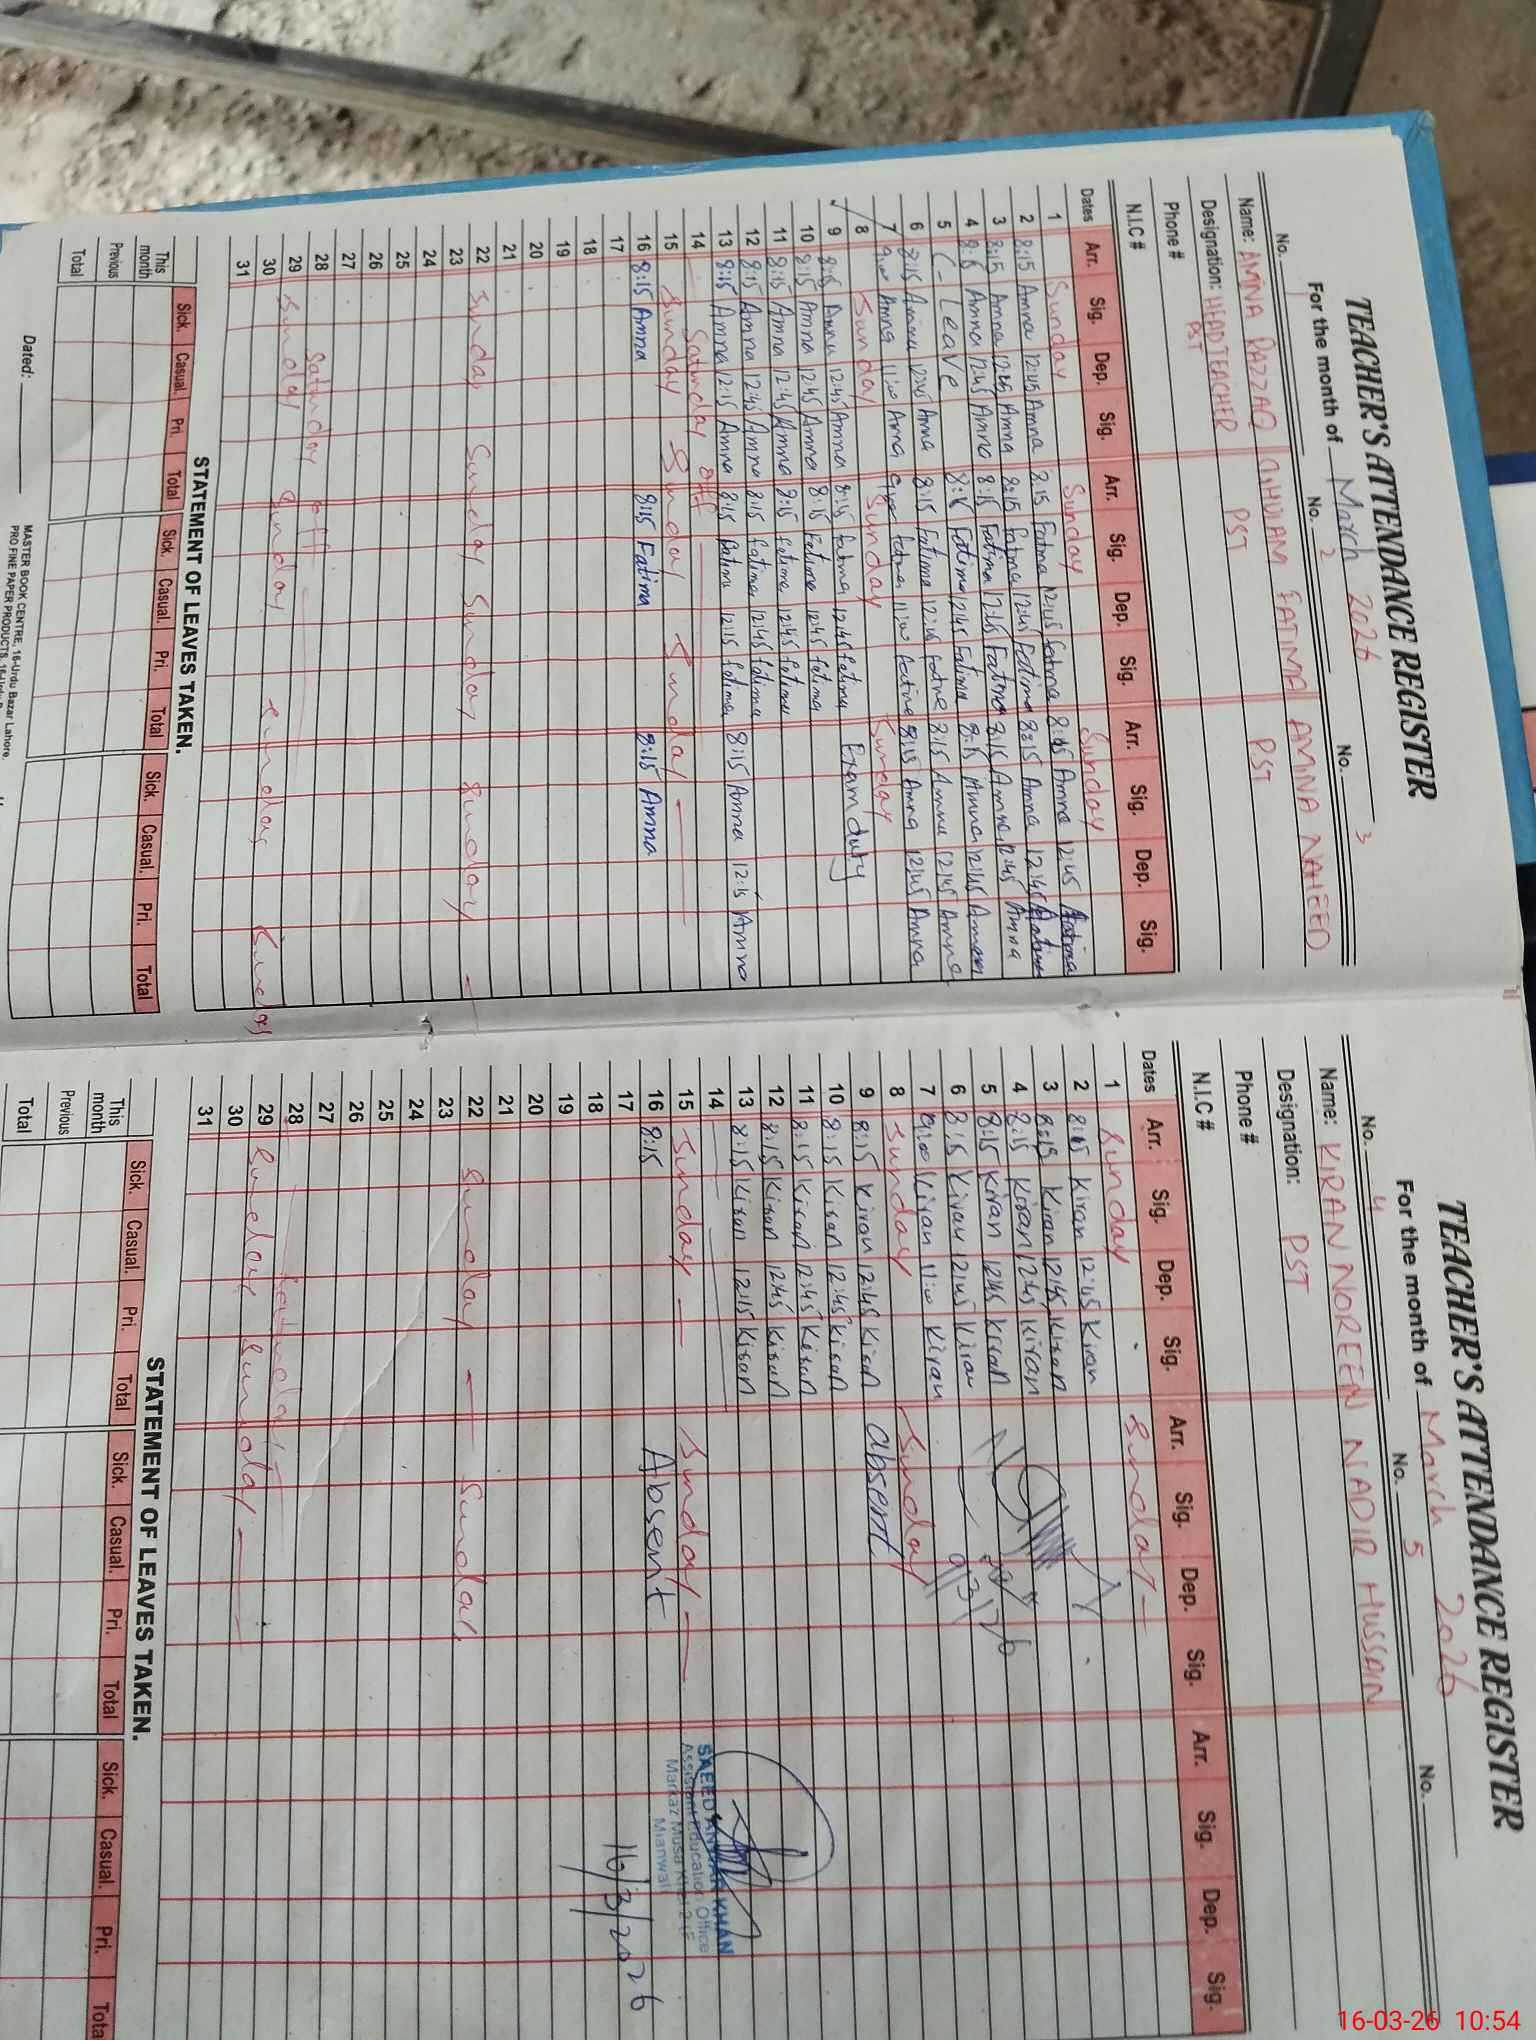 TEACHER'S ATTENDANCE REGISTER
For the month of March 2026
No. No. 2 No. 3
Name: AMNA RAZZAQ FATIMA AMINA NAHEED
Designation: HEADTEACHER PST PST
PST
Phone #
N.I.C #
Dates Arr. Sig. Dep. Sig. Arr. Sig. Dep. Sig. Arr. Sig. Dep. Sig.
1 Sunday Sunday Sunday
2 8:15 Amna 12:45 Amna 8:15 Fatima 12:45 Fatima 8:15 Amna 12:45
3 8:15 Amna 12:45 Amna 8:15 Fatima 12:45 Fatima 8:15 Amna 12:45
4 8:15 Amna 12:45 Amna 8:15 Fatima 12:45 Fatima 8:15 Amna 12:45 Amna
5 C-Leave 8:15 Fatima 12:45 Fatima 8:15 Amna 12:45 Amna
6 8:15 Amna 12:45 Amna 8:15 Fatima 12:45 Fatima 8:15 Amna 12:45 Amna
7 9:00 Amna 11:00 Amna 9:00 Fatima 11:00 Fatima 8:15 Amna 12:45 Amna
8 Sunday Sunday Sunday
9 8:15 Amna 12:45 Amna 8:15 Fatima 12:45 Fatima Exam duty
10 8:15 Amna 12:45 Amna 8:15 Fatima 12:45 Fatima
11 8:15 Amna 12:45 Amna 8:15 Fatima 12:45 Fatima
12 8:15 Amna 12:45 Amna 8:15 Fatima 12:45 Fatima
13 8:15 Amna 12:15 Amna 8:15 Fatima 12:15 Fatima 8:15 Amna 12:15 Amna
14 Saturday off
15 Sunday Sunday Sunday
16 8:15 Amna 8:15 Fatima 8:15 Amna
17
18
19
20
21
22 Sunday Sunday Sunday Sunday
23
24
25
26
27
28 Saturday off
29 Sunday Sunday Sunday Sunday
30
31
STATEMENT OF LEAVES TAKEN.
Sick. Casual. Pri. Total Sick. Casual. Pri. Total Sick. Casual. Pri. Total
This month
Previous
Total
Dated:
MASTER BOOK CENTRE, 16-Urdu Bazar Lahore.
PRO FINE PAPER PRODUCTS,
TEACHER'S ATTENDANCE REGISTER
For the month of March 2026
No. 4 No. 5 No.
Name: KIRAN NOREEN NADIR HUSSAIN
Designation: PST
Phone #
N.I.C #
Dates Arr. Sig. Dep. Sig. Arr. Sig. Dep. Sig. Arr. Sig. Dep. Sig.
1 Sunday Sunday
2 8:15 Kiran 12:45 Kiran
3 8:15 Kiran 12:45 Kiran
4 8:15 Kiran 12:45 Kiran
5 8:15 Kiran 12:45 Kiran
6 8:15 Kiran 12:45 Kiran 9/3/26
7 9:00 Kiran 11:00 Kiran
8 Sunday Sunday
9 8:15 Kiran 12:45 Kiran absent
10 8:15 Kiran 12:45 Kiran
11 8:15 Kiran 12:45 Kiran
12 8:15 Kiran 12:45 Kiran
13 8:15 Kiran 12:15 Kiran
14
15 Sunday Sunday
16 8:15 Absent
17
18
19
20
21
22 Sunday Sunday
23
24
25
26
27
28 Saturday
29 Sunday Sunday
30
31
SAEED ANWAR KHAN
Assistant Education Office
Markaz Musa Khel 2
Mianwali
16/3/2026
STATEMENT OF LEAVES TAKEN.
Sick. Casual. Pri. Total Sick. Casual. Pri. Total Sick. Casual. Pri. Tota
This month
Previous
Total
16-03-26 10:54